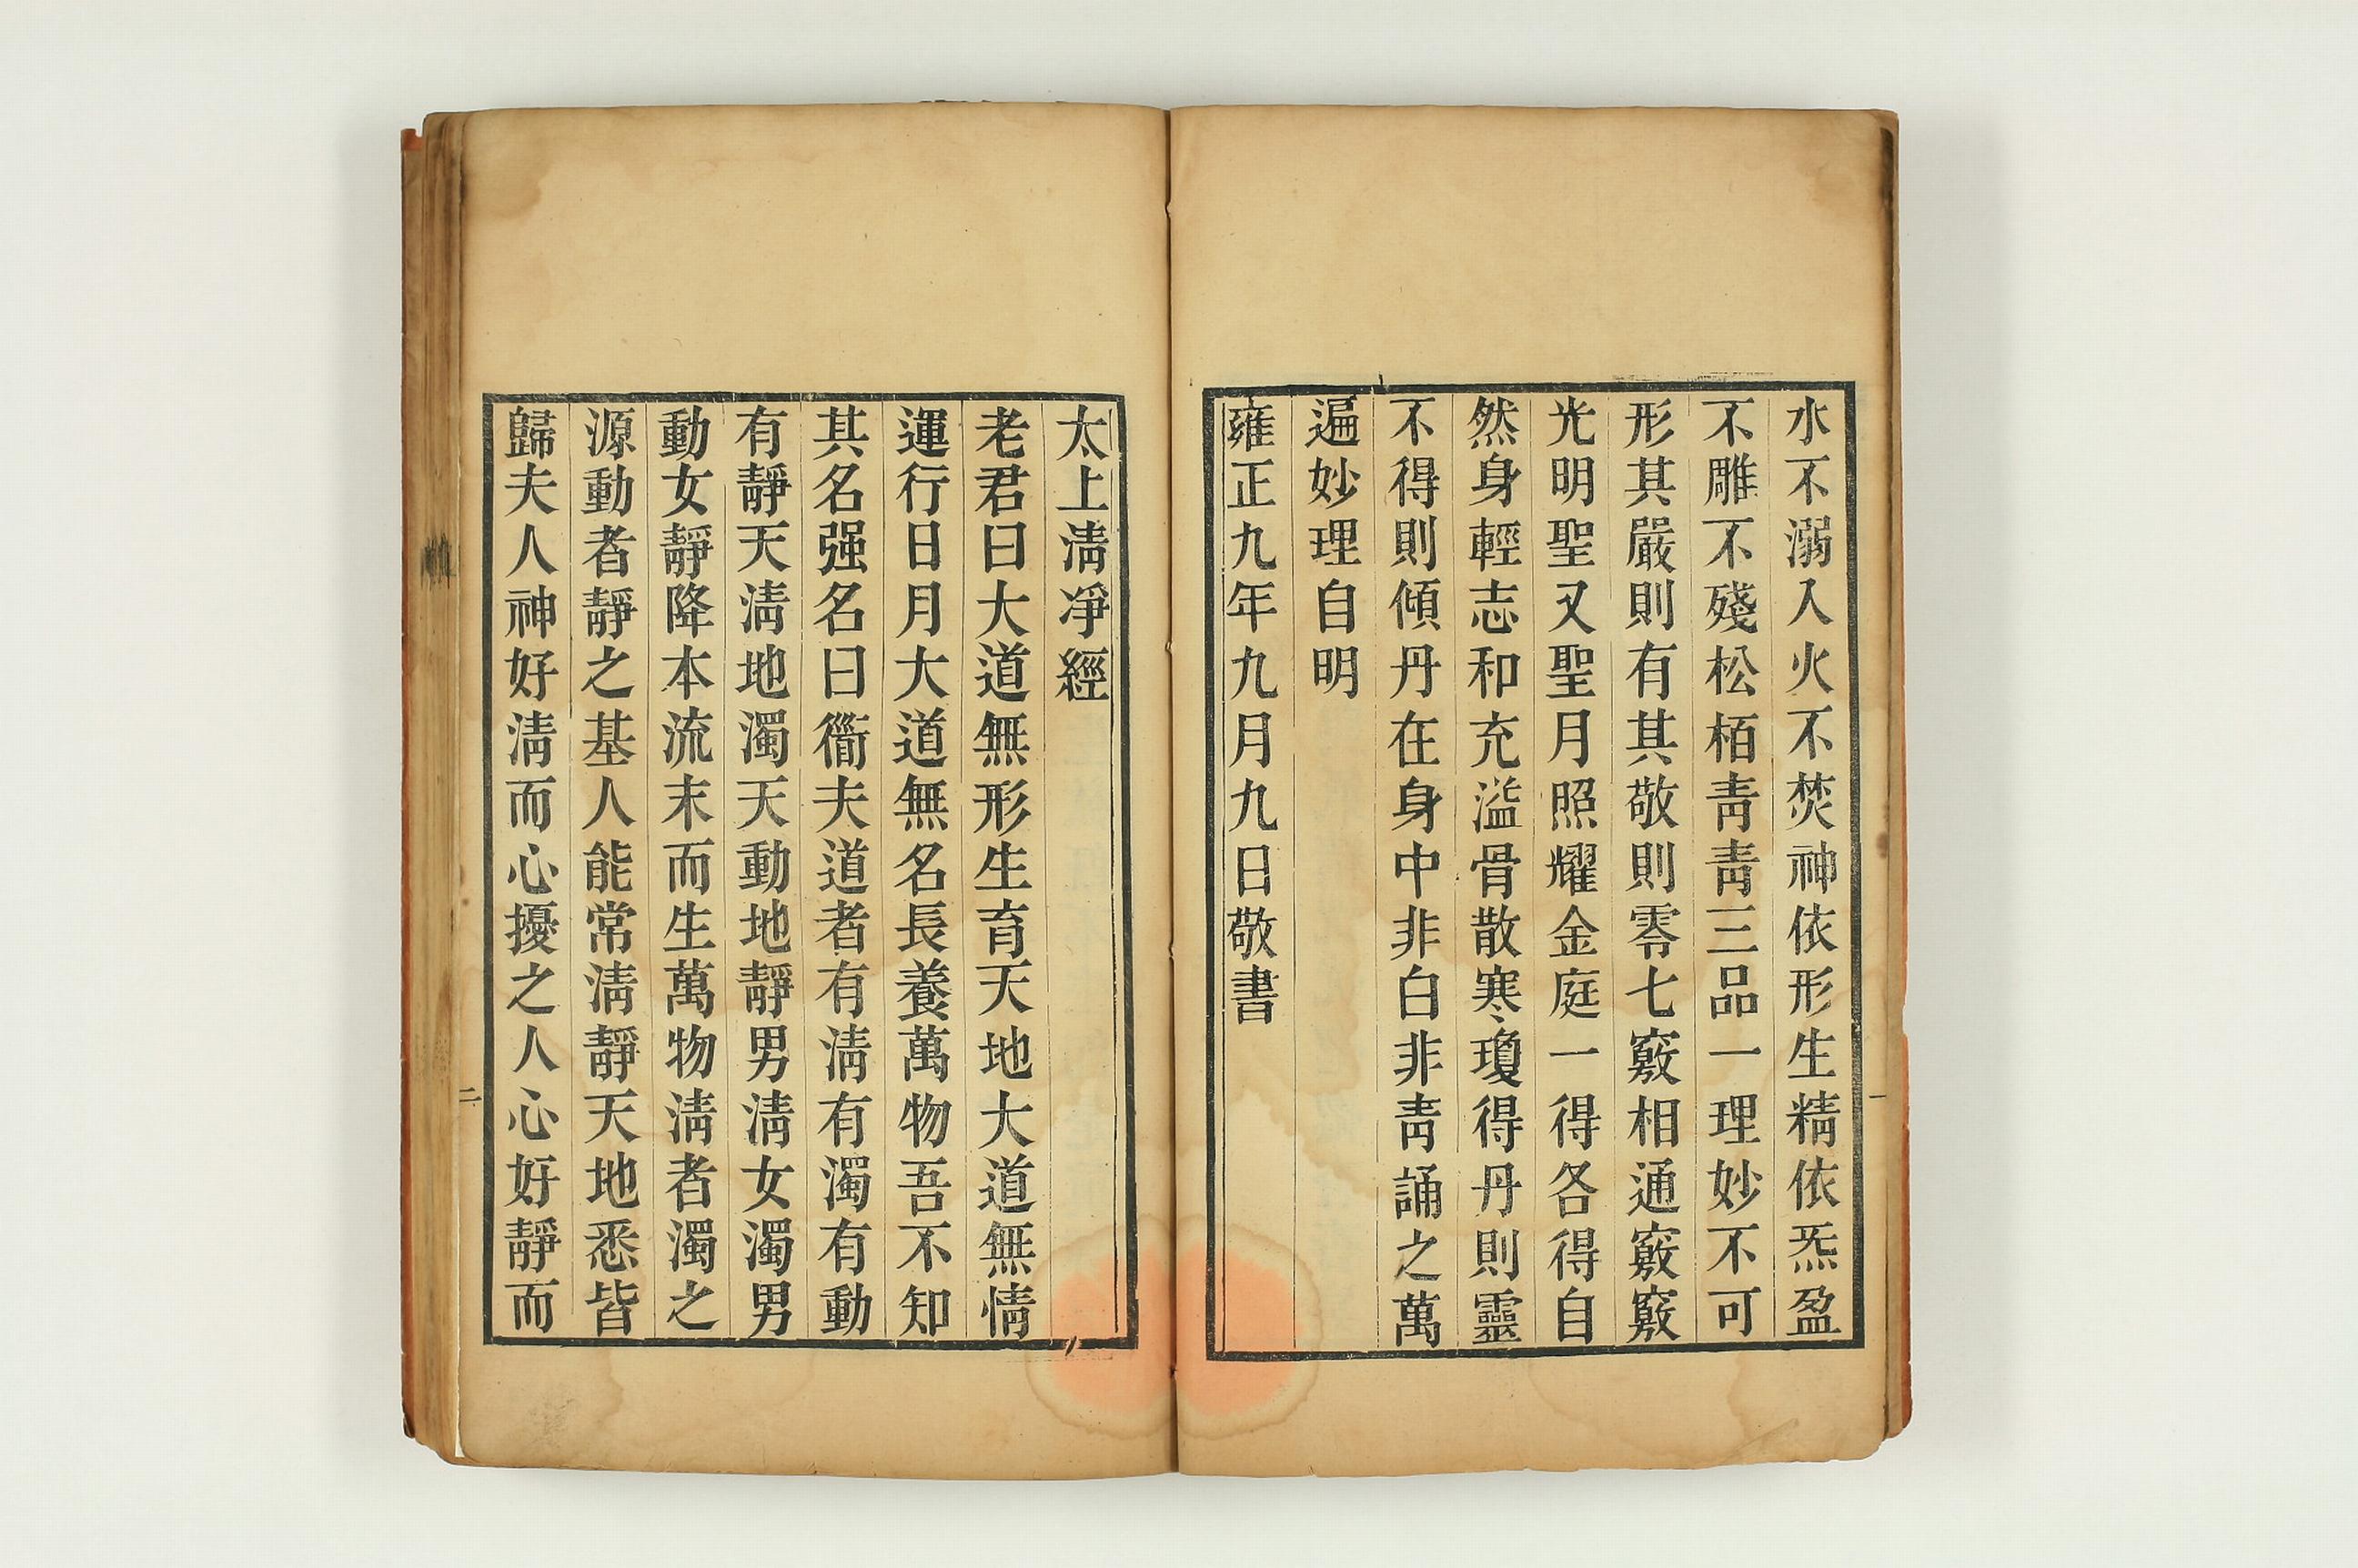 水不溺入火不焚神依形生精依炁盈
不雕不殘松栢靑靑三品一理妙不可
形其嚴則有其敬則零七竅相通竅竅
光明聖又聖月照耀金庭一得各得自
然身輕志和充溢骨散寒瓊得丹則靈
不得則傾丹在身中非白非靑誦之萬
遍妙理自明
雍正九年九月九日敬書
一
太上淸凈經
老君曰大道無形生育天地大道無情
運行日月大道無名長養萬物吾不知
其名强名曰衟夫道者有淸有濁有動
有靜天淸地濁天動地靜男淸女濁男
動女靜降本流末而生萬物淸者濁之
源動者靜之基人能常淸靜天地悉皆
歸夫人神好淸而心擾之人心好靜而
二